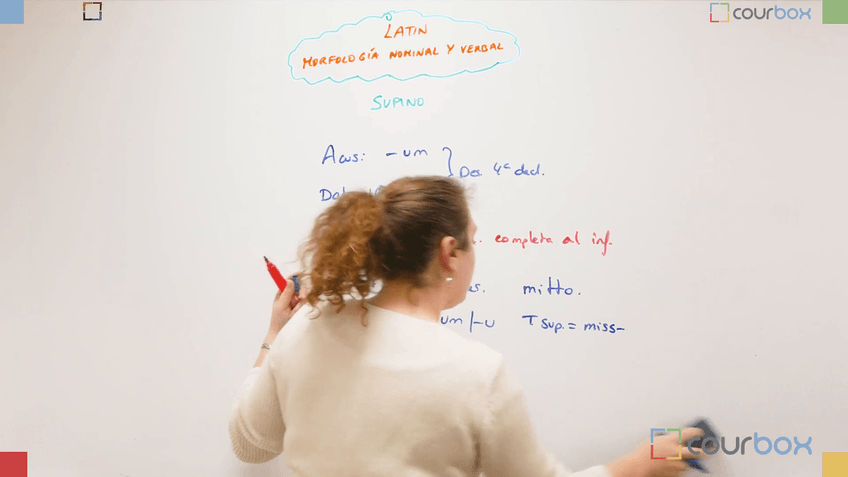 courbox
LATIN
MORFOLOGÍA NOMINAL Y VERBAL
SUPINO
Acus: -um
De 4ª decl.
completa al inf.
mitto.
um/-u T sup. = miss-
courbox